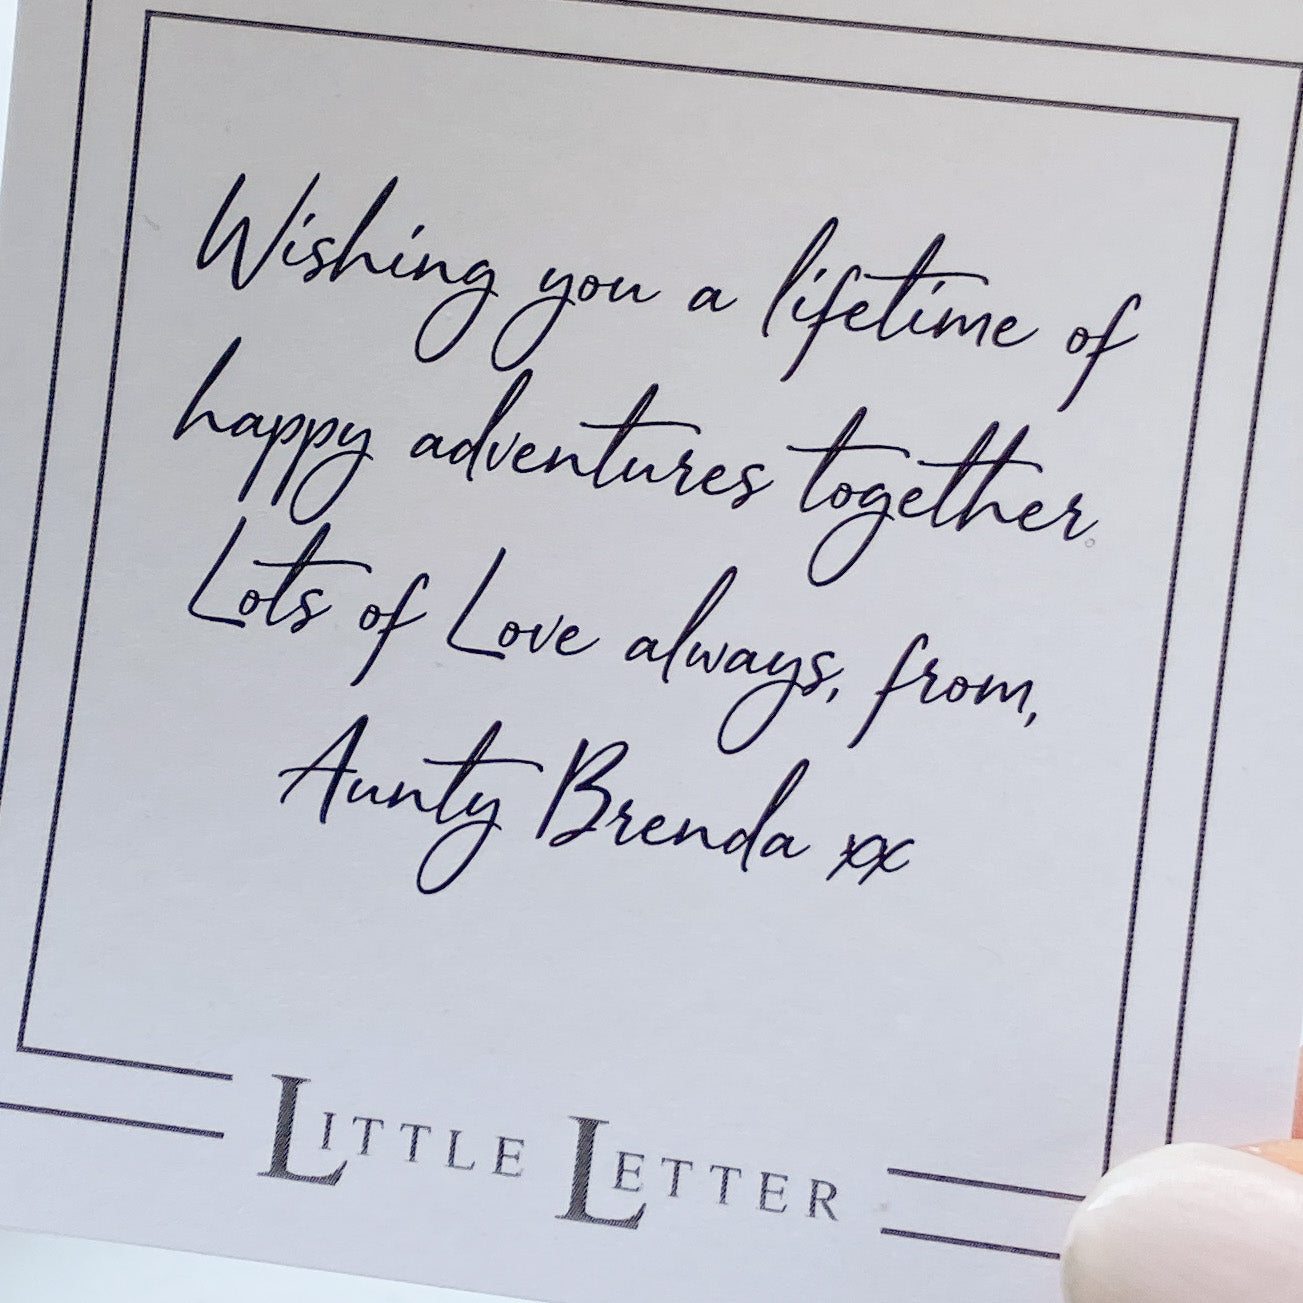 Wishing you a lifetime of
happy adventures together.
Lots of Love always, from,
Aunty Brenda xx
LITTLE LETTER